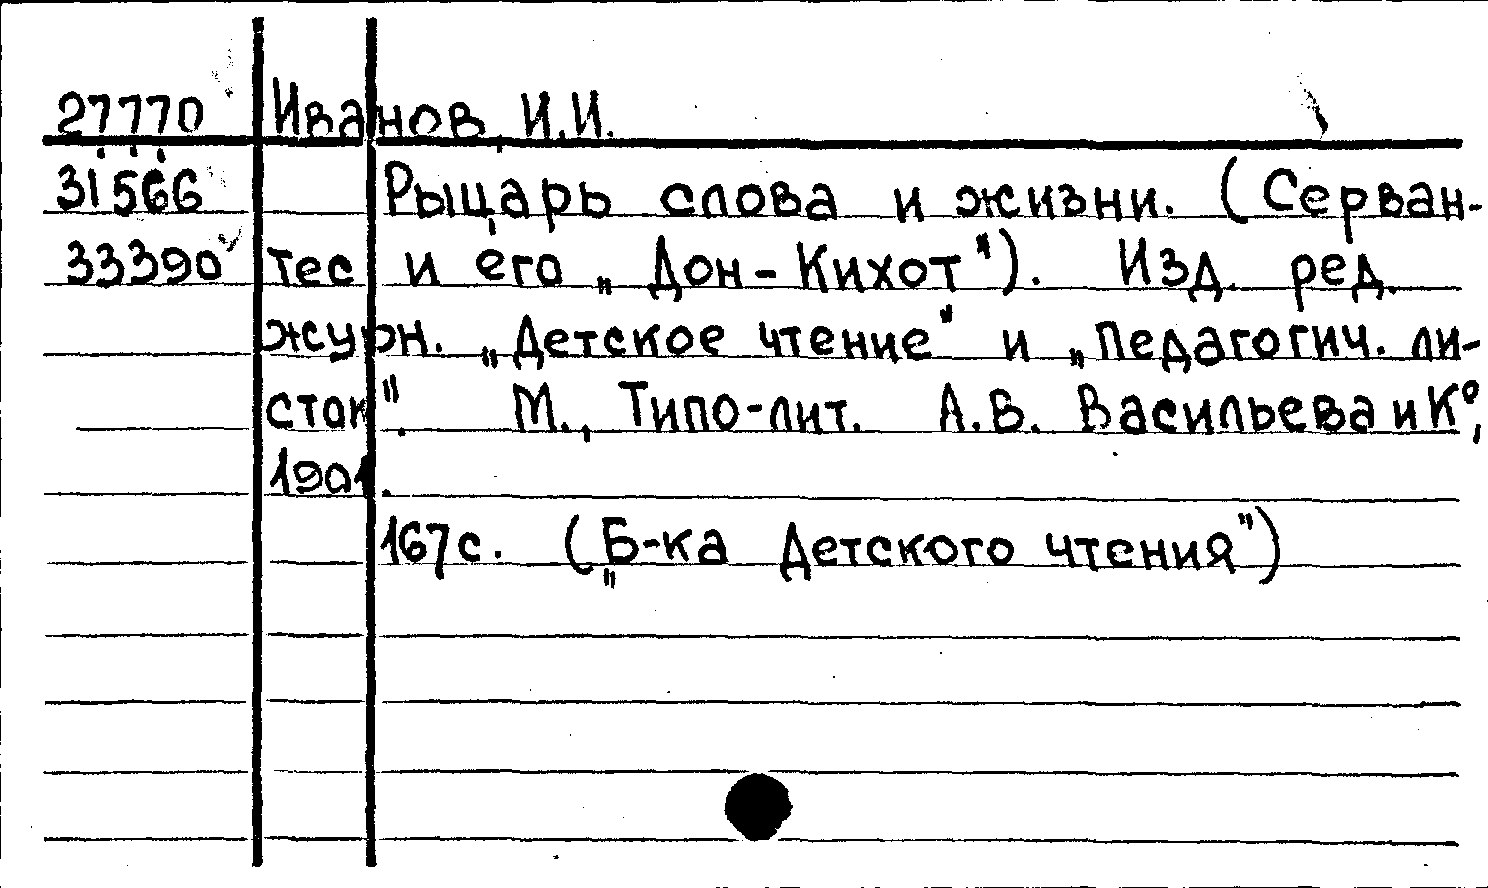 27770 Иванов, И.И.
31566 Рыцарь слова и жизни. (Серван-
33390 тес и его „Дон-Кихот"). Изд. ред.
журн. „Детское чтение" и „Педагогич. ли-
сток". М., Типо-лит. А.В. Васильева и К°,
1901.
167с. („Б-ка Детского чтения")